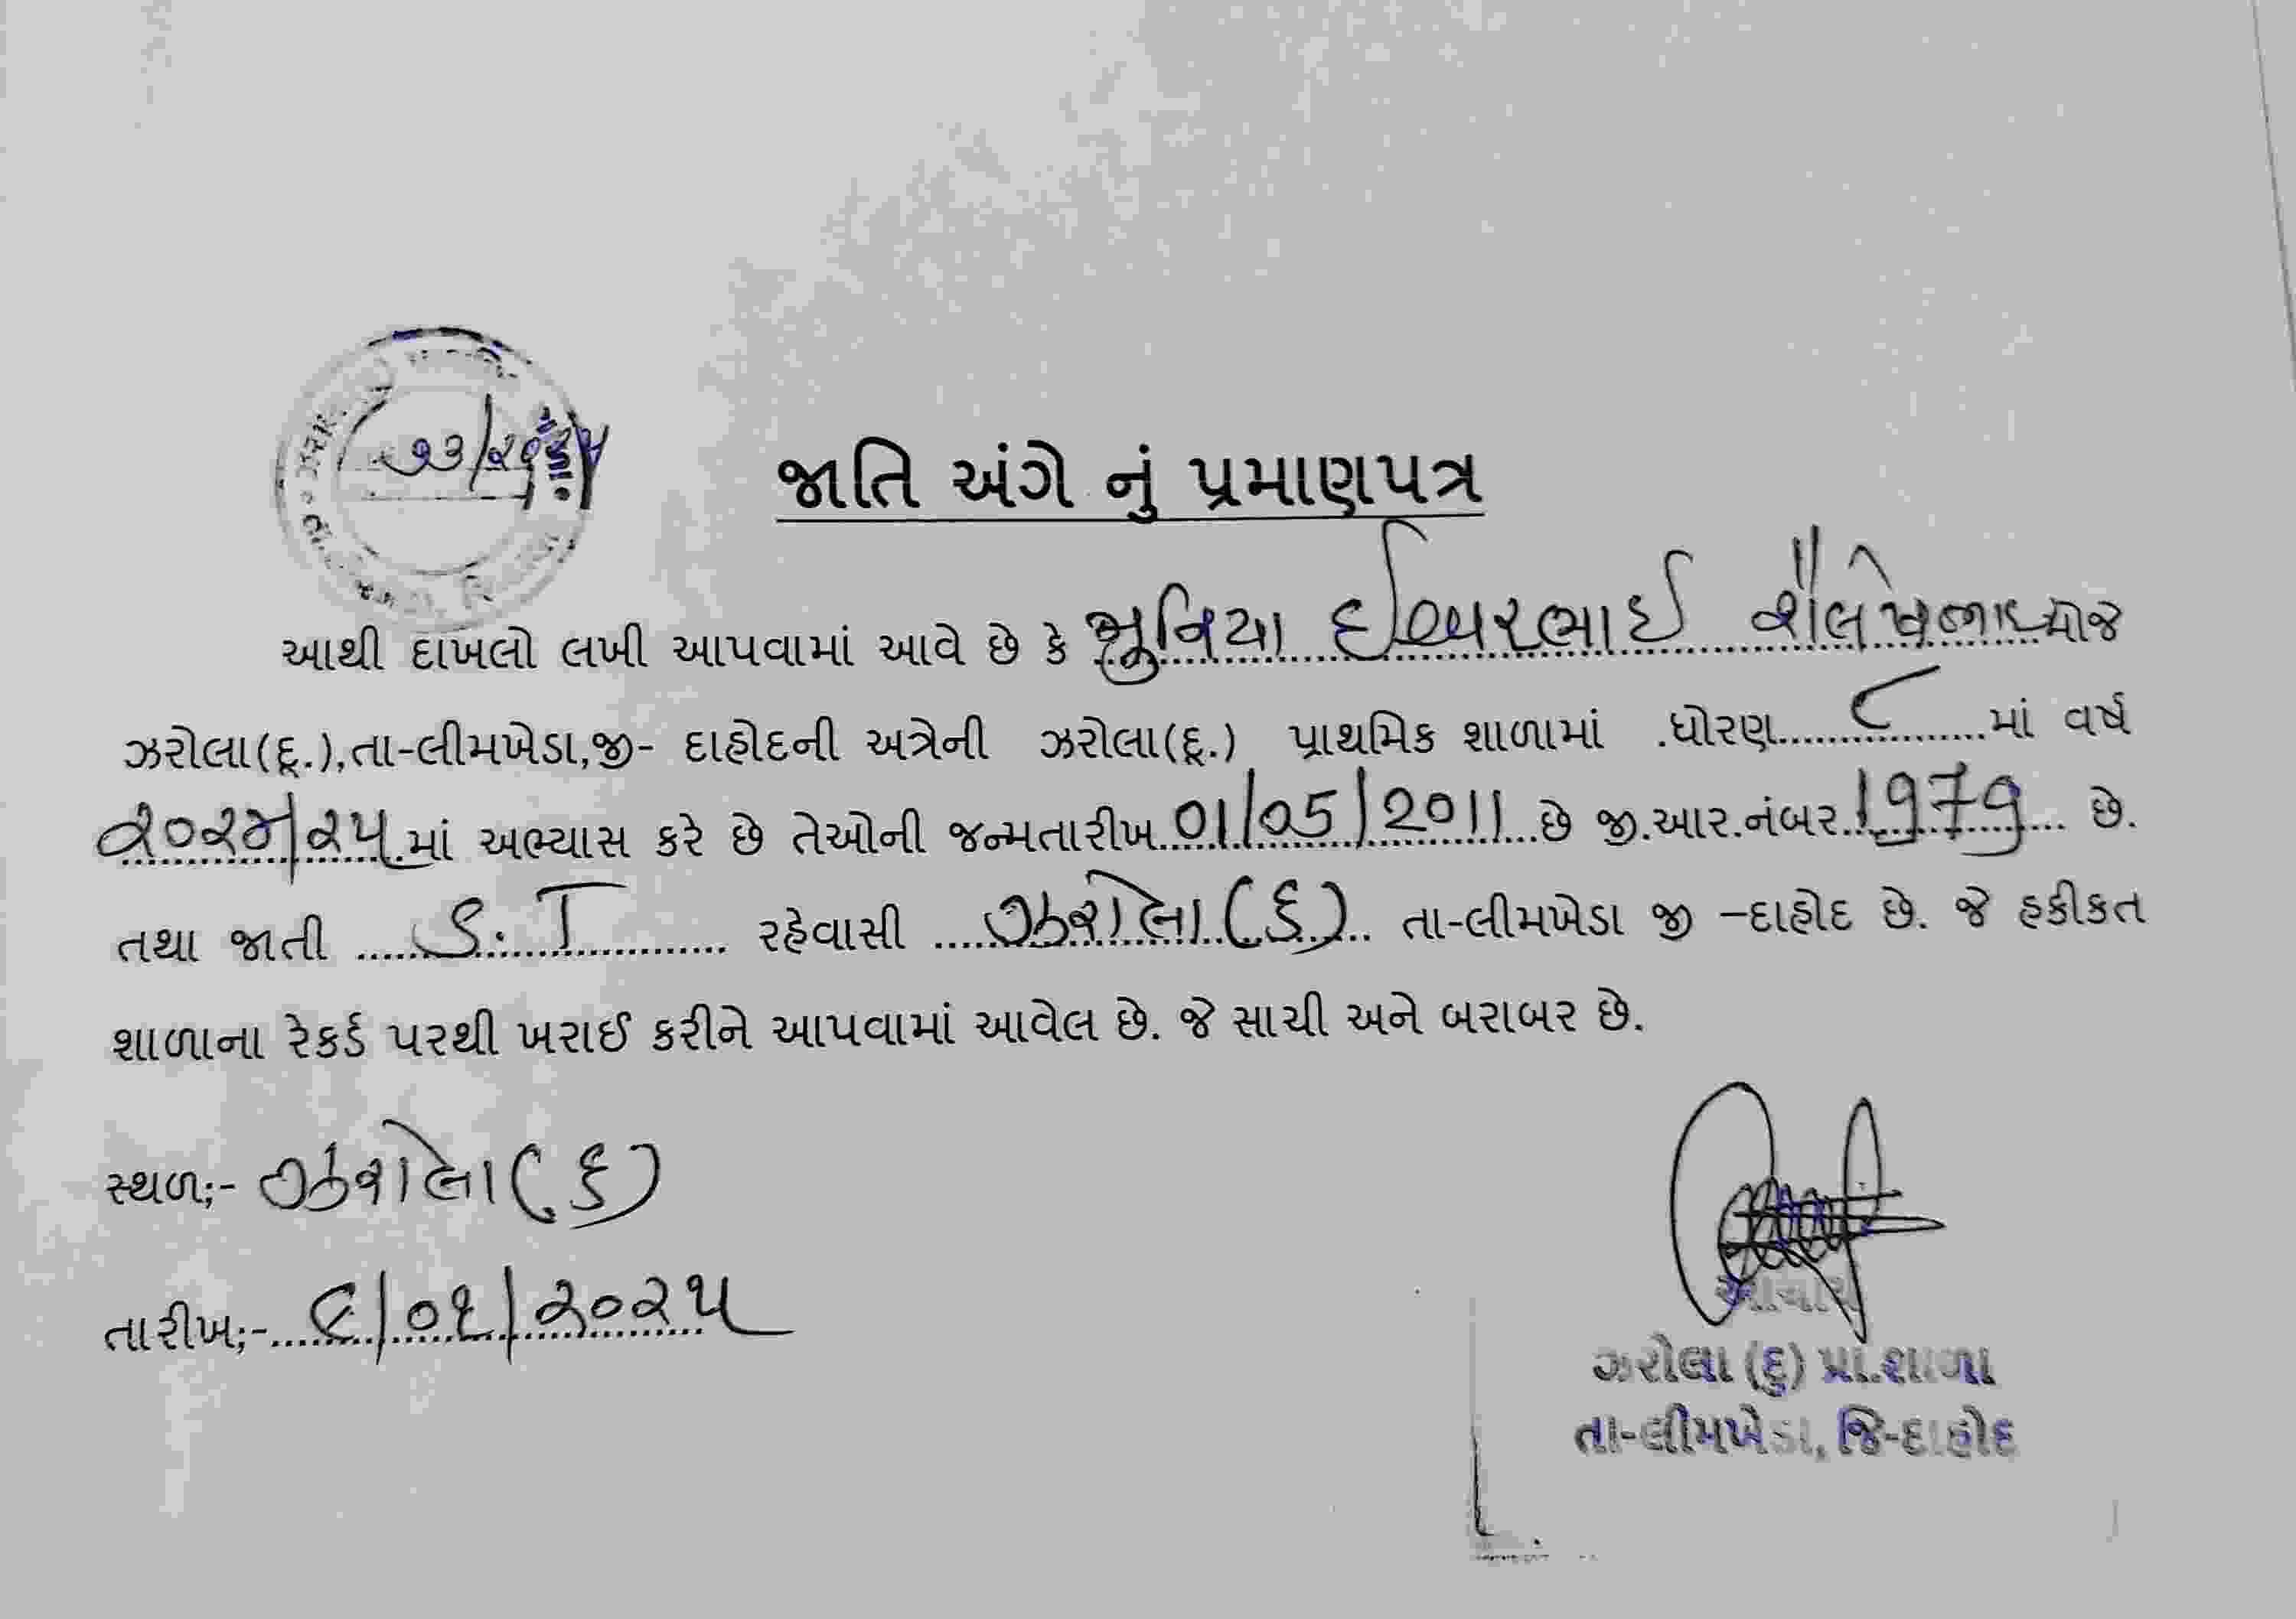 જાતિ અંગે નું પ્રમાણપત્ર
આથી દાખલો લખી આપવામાં આવે છે કે ભુનિયા ઈશ્વરભાઈ મોજે
ઝરોલા(દૂ.),તા-લીમખેડા,જી- દાહોદની અત્રેની ઝરોલા(દૂ.) પ્રાથમિક શાળામાં .ધોરણ ૮ માં વર્ષ
૨૦૨૪/૨૫ માં અભ્યાસ કરે છે તેઓની જન્મતારીખ 01/05/2011 છે જી.આર.નંબર 1979 છે.
તથા જાતી S.T રહેવાસી ઝરોલા(દુ) તા-લીમખેડા જી –દાહોદ છે. જે હકીકત
શાળાના રેકર્ડ પરથી ખરાઈ કરીને આપવામાં આવેલ છે. જે સાચી અને બરાબર છે.
સ્થળ;- ઝરોલા(દુ)
તારીખ;- ૯/૦૧/૨૦૨૫
આચાર્ય
ઝરોલા (દુ) પ્રા.શાળા
તા-લીમખેડા, જિ-દાહોદ